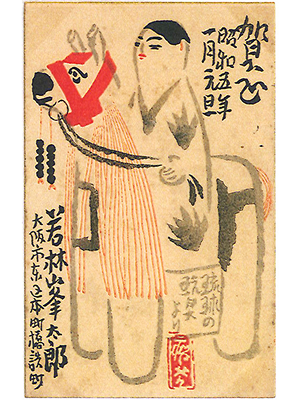 賀正
昭和五年
一月元旦
琉球の
玩具
より
若林峯太郎
大阪市東区本町橋詰町